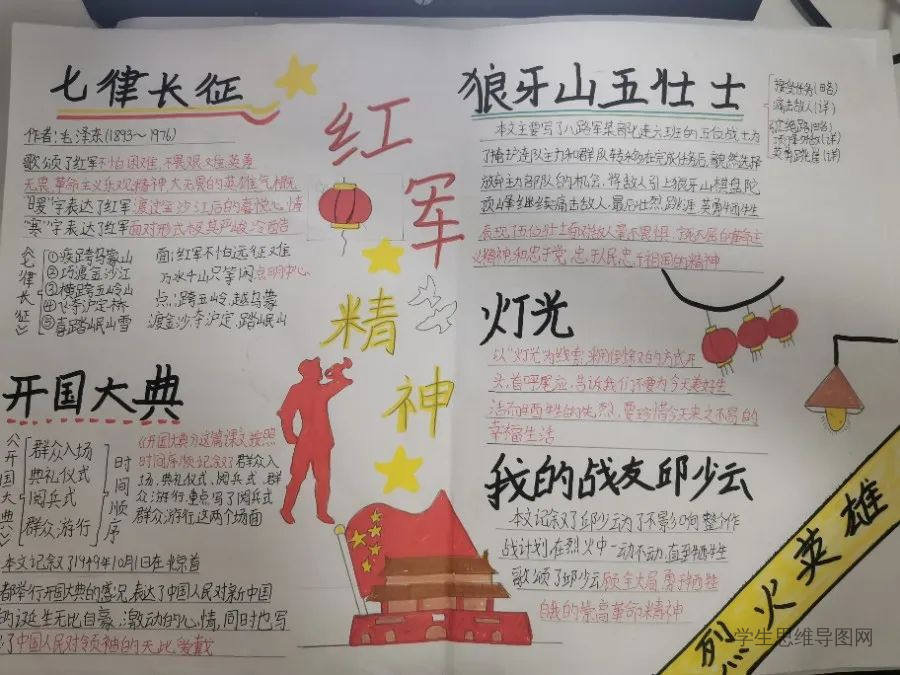 七律长征
作者:毛泽东(1893~1976)
歌颂了红军不怕困难,不畏艰难险英勇
无畏,革命主义乐观精神大无畏的英雄气概
"暖"字表达了红军渡过金沙江后的喜悦心情
"寒"字表达了红军面对形式极其严峻,冷酷
《七律长征》
①疾跨乌蒙山
②巧渡金沙江
③横跨五岭山
④飞夺泸定桥
⑤喜踏岷山雪
面:红军不怕远征难
万水千山只等闲 点明中心
点:跨五岭,越乌蒙
渡金沙,夺泸定,踏岷山
开国大典
《开国大典》
群众入场
典礼仪式
阅兵式
群众游行
时间顺序
《开国大典》这篇课文按照
时间顺序记叙了群众入
场,典礼仪式,阅兵式,群
众游行,重点写了阅兵式
群众游行这两个场面
本文记叙了1949年10月1日在北京首
都举行开国大典的盛况,表达了中国人民对新中国
的诞生无比自豪、激动的心情,同时也写
了中国人民对领袖的无比爱戴
红军精神
狼牙山五壮士
接受任务(略)
痛击敌人(详)
英勇跳崖(详)
本文主要写了八路军某部七连六班的五位战士为
了掩护连队主力和群众转移,在完成任务后,毅然选择
放弃主力部队的机会,将敌人引上狼牙山棋盘陀
顶峰继续痛击敌人,最后壮烈跳涯,英勇牺牲
表现五位壮士面对敌人毫不畏惧、
精神和忠于党,忠于人民,忠于祖国的精神
灯光
以"灯光"为线索,采用倒叙的方式开
头,首呼尾应,告诉我们不要为今天美好生
活而牺牲的先烈,要珍惜今天来之不易的
幸福生活
我的战友邱少云
本文记叙了邱少云为了不影响整个作
战计划,在烈火中一动不动,直到牺牲
歌颂了邱少云顾全大局,勇于牺牲
自我的崇高革命精神
烈火英雄
学生思维导图网